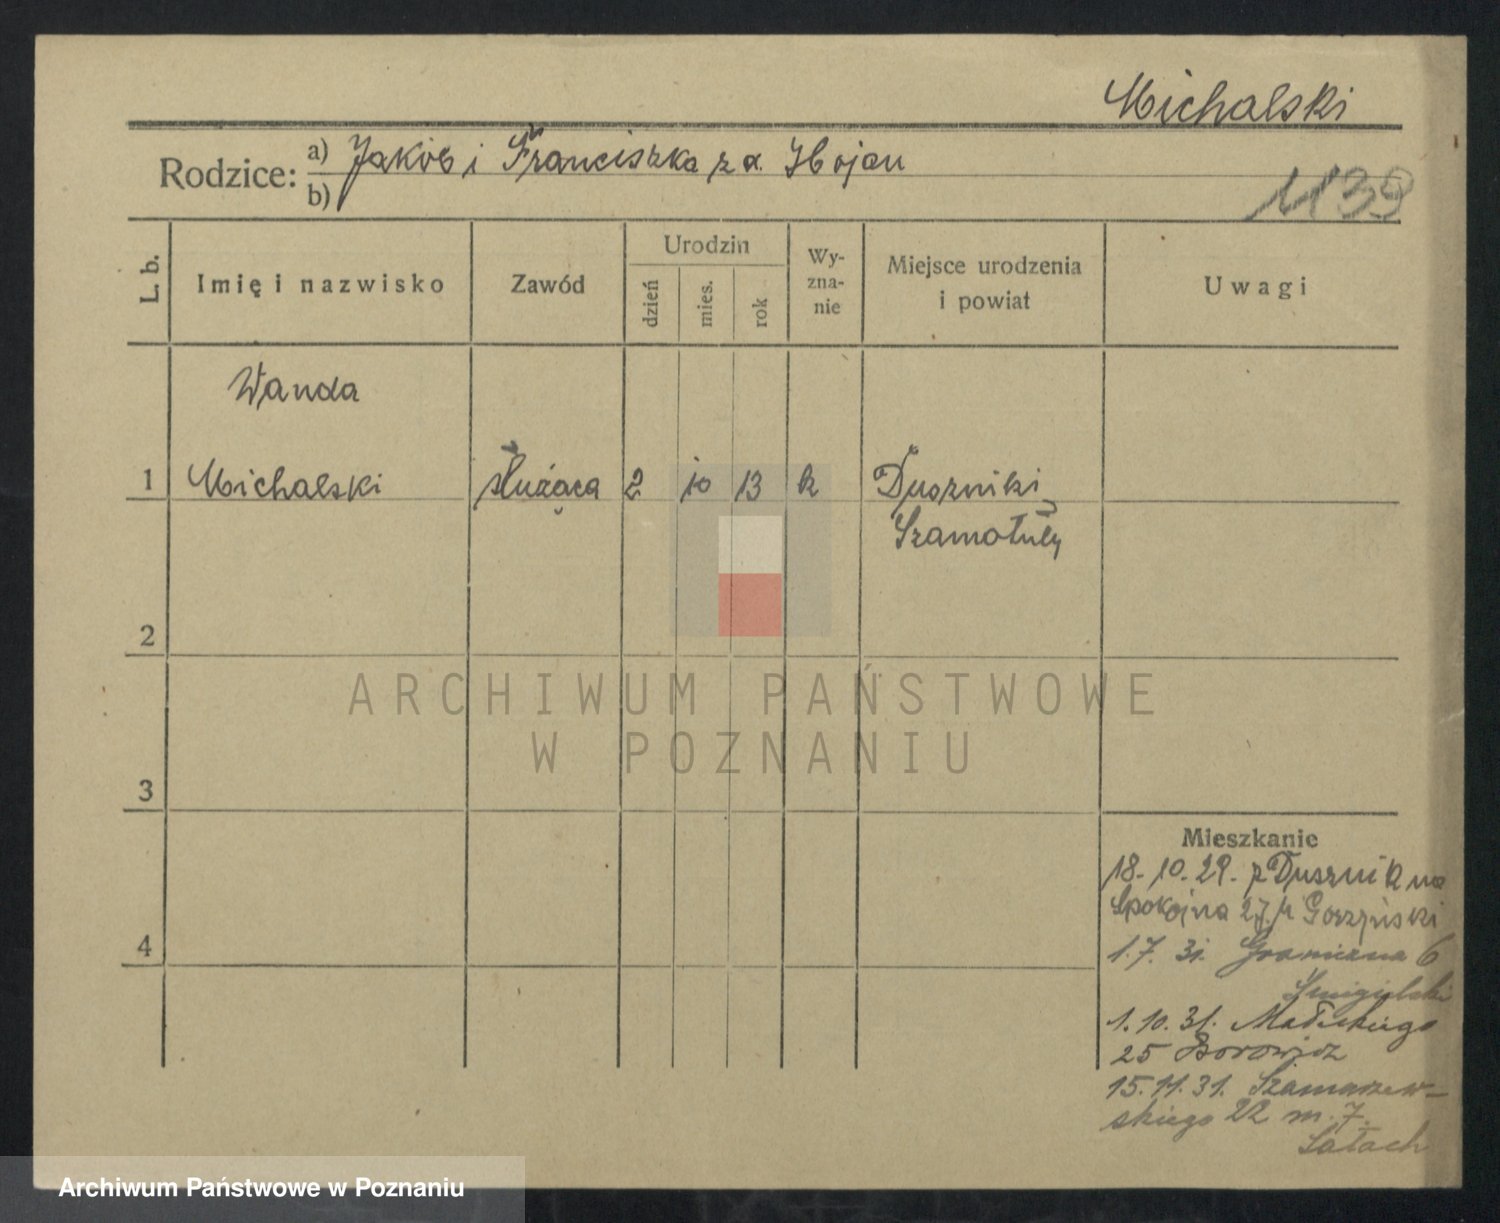 Michalski
Rodzice: a) Jakób i Franciszka z d. Zbojan
b)
1139
L. b.
Imię i nazwisko
Zawód
Urodzin
dzień
mies.
rok
Wy-
zna-
nie
Miejsce urodzenia
i powiat
Uwagi
Wanda
1 Michalski służąca 2 10 13 k Duszniki
Szamotuły
2
ARCHIWUM PAŃSTWOWE
W POZNANIU
3
Mieszkanie
18. 10. 29. z Dusznik na
Spokojna 27. Gorzyński
4
1. 7. 31. Graniczna 6
Śmigielski
1. 10. 31. Małeckiego
25 Borowicz
15. 11. 31. Szamarzew-
skiego 22 m. 7.
Sałach
Archiwum Państwowe w Poznaniu